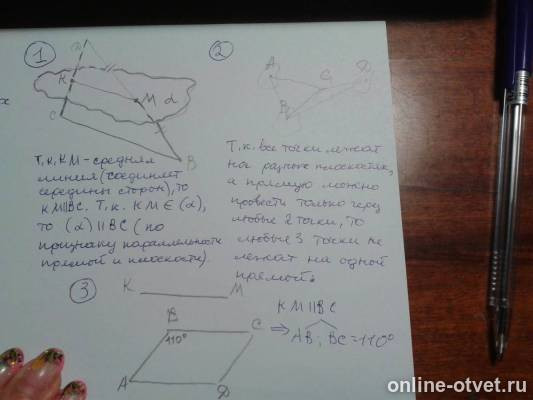 1
K
M
α
C
B
Т.к. KM - средняя
линия (соединяет
середины сторон), то
KM||BC. Т.к. KM ∈ (α),
то (α) || BC (по
признаку параллельности
прямой и плоскости).
2
A
C
D
B
Т.к. все точки лежат
на разных плоскостях,
а прямую можно
провести только через
любые 2 точки, то
любые 3 точки не
лежат на одной
прямой.
3
K M
B C
110°
A D
KM||BC
⇒ AB; BC = 110°
online-otvet.ru